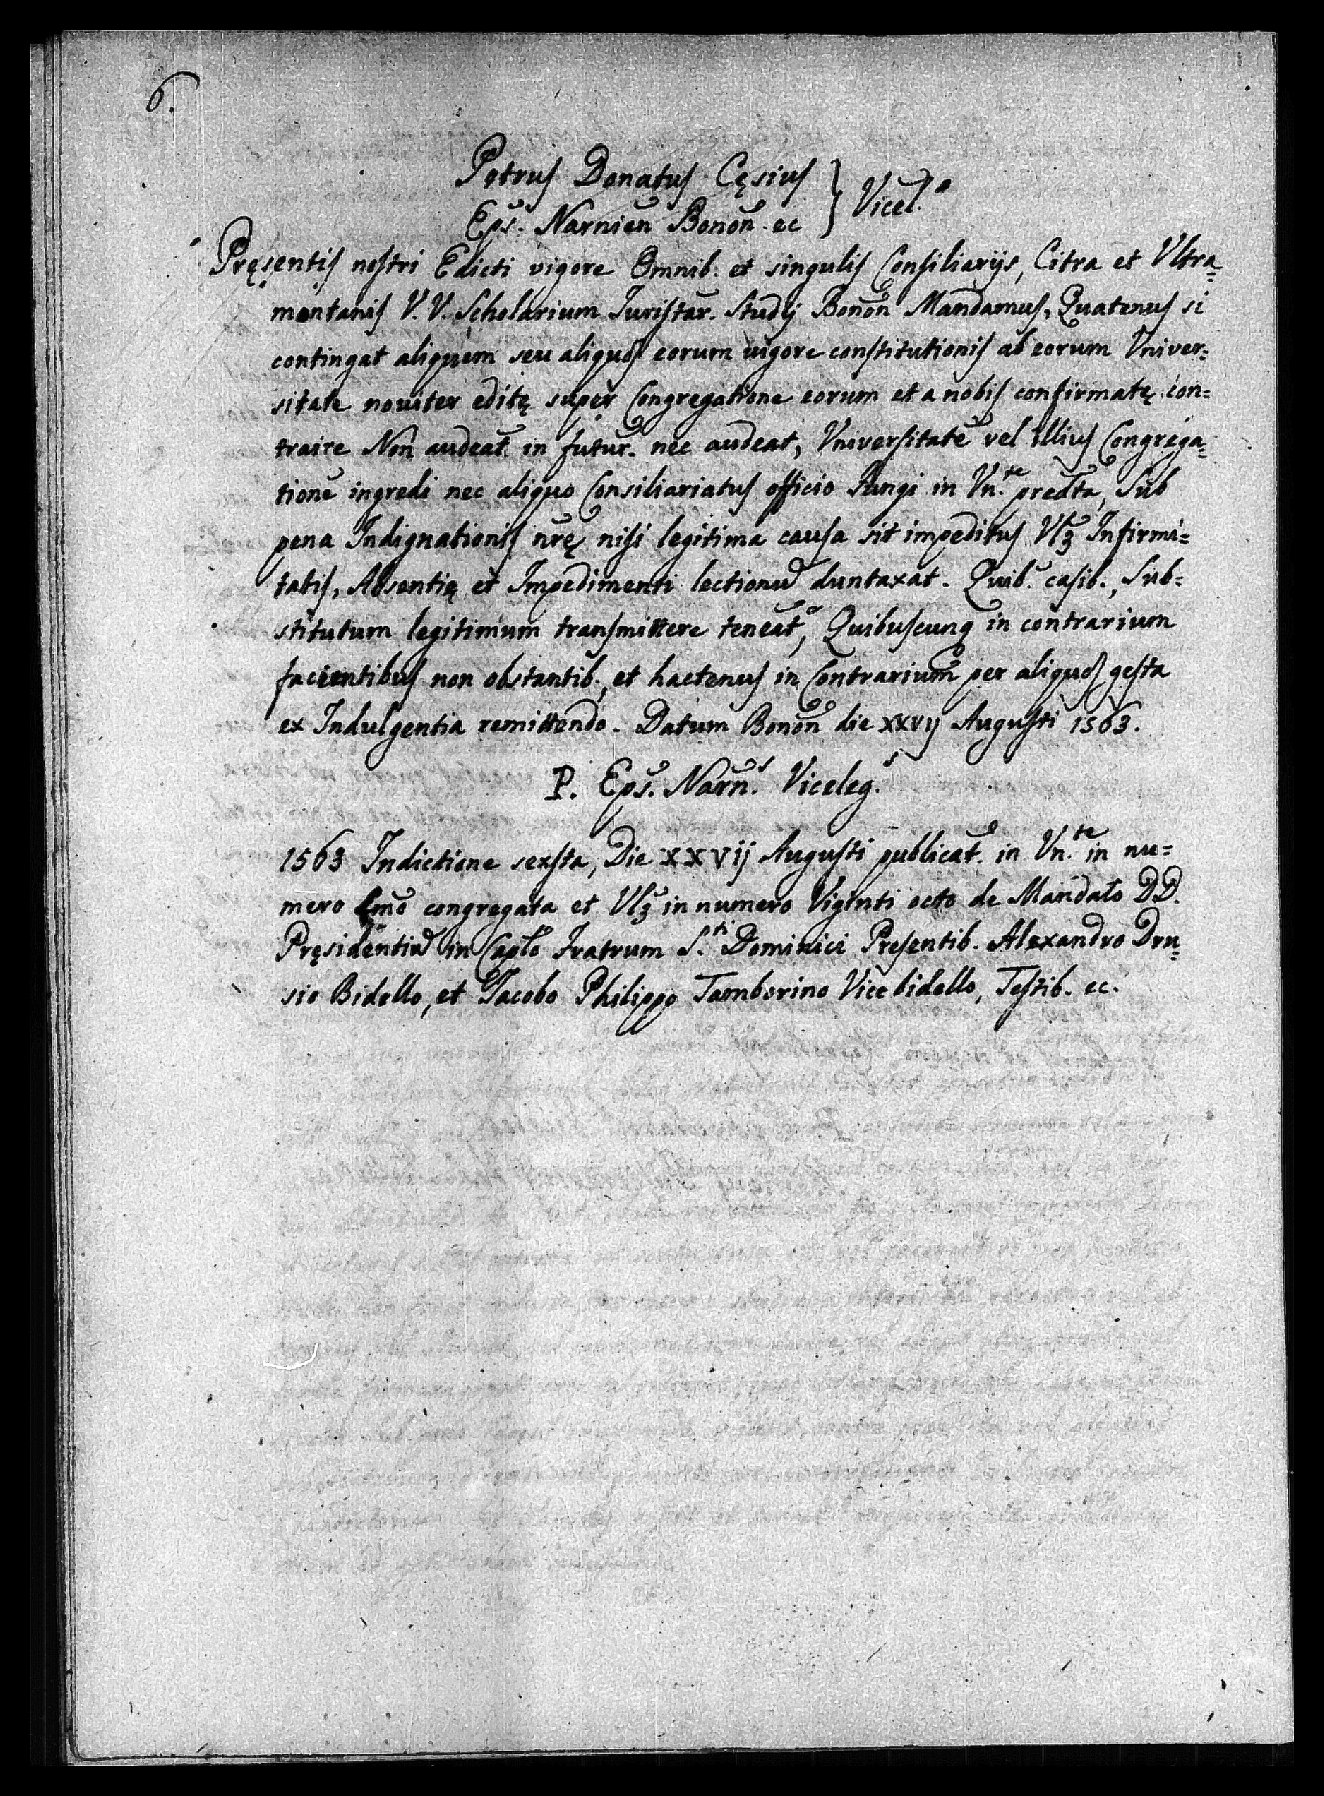 6.
Petrus Donatus Cęsius } Vicel.s
Eps. Narnien Bonon. ec
Pręsentis nostri Edicti vigore Omnib. et singulis Consiliarijs, Citra et Ultra=
montanis V. V. Scholarium Juristar. Studij Bonon Mandamus, Quatenus si
contingat aliquem seu aliquos eorum vigore constitutionis ab eorum Vniver=
sitate noviter editę super Congregatione eorum et a nobis confirmatę con=
traire Non audeat. in futur. nec audeat, Vniversitatē vel illius Congrega=
tionē ingredi nec aliquo Consiliariatus officio fungi in Vn.te predta, Sub
pena Indignationis nrę nisi legitima causa sit impeditus Vlz Infirmi=
tatis, Absentię et Impedimenti lectionū duntaxat. Quib. casib., Sub=
stitutum legitimum transmittere teneat, Quibuscunq in contrarium
facientibus non obstantib., et hactenus in Contrarium per aliquos gesta
ex Indulgentia remittendo. Datum Bonon die xxvij Augusti 1563.
P. Eps. Narn.s Viceleg.s
1563 Indictione sexsta, Die XXVij Augusti publicat. in Vn.te in nu=
mero congregata et Vlz in numero Viginti octo de Mandato DD.
Pręsidentiū in Caplo Fratrum S.ti Dominici Presentib. Alexandro Dru=
sio Bidello, et Jacobo Philippo Tamborino Vicebidello, Testib. ec.